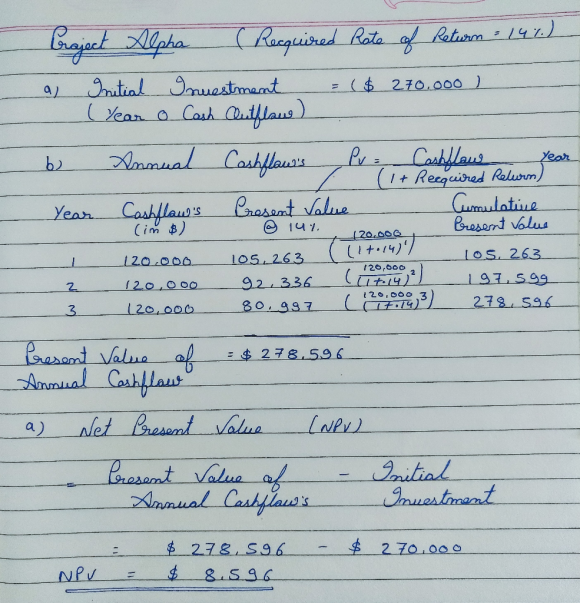 Project Alpha ( Recquired Rate of Return = 14%)
a) Initial Investment = ($ 270.000 )
( Year 0 Cash Outflow)
b) Annual Cashflow's Pv = Cashflow year
(1 + Recquired Return)
Year Cashflow's Present Value Cumulative
(in $) @ 14% Present Value
1 120.000 105.263 (120.000 / (1+.14)¹) 105.263
2 120,000 92.336 (120,000 / (1+.14)²) 197.599
3 120,000 80.997 (120,000 / (1+.14)³) 278.596
Present Value of = $ 278.596
Annual Cashflow
a) Net Present Value (NPV)
= Present Value of - Initial
Annual Cashflow's Investment
= $ 278.596 - $ 270.000
NPV = $ 8.596